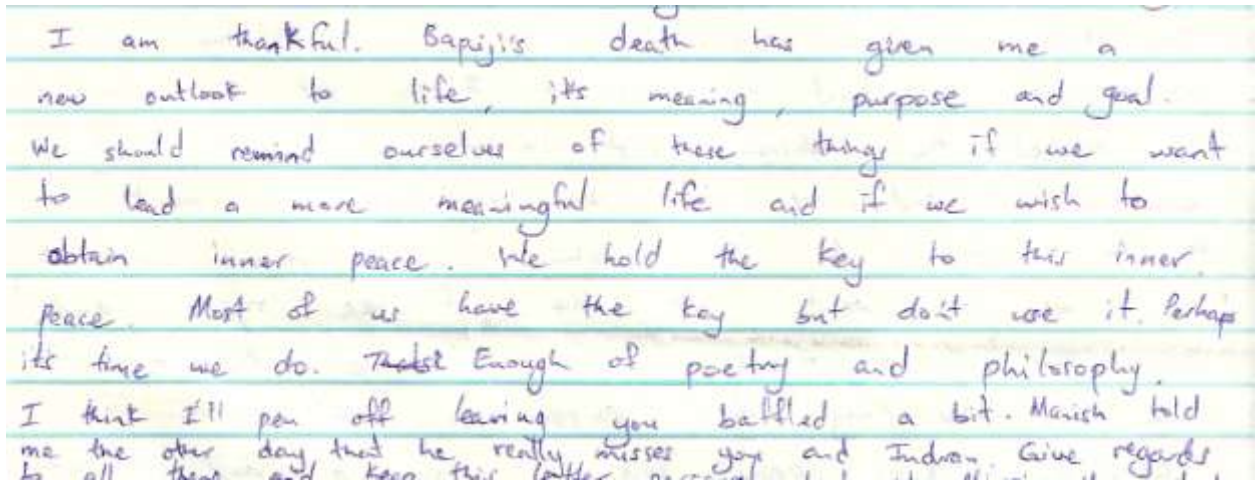 I am thankful. Bapiji's death has given me a
new outlook to life, it's meaning, purpose and goal.
We should remind ourselves of these things if we want
to lead a more meaningful life and if we wish to
obtain inner peace. We hold the key to this inner
peace. Most of us have the key but don't use it. Perhaps
its time we do. Enough of poetry and philosophy.
I think I'll pen off leaving you baffled a bit. Manish told
me the other day that he really misses you and Indran. Give regards
to all there and keep this letter